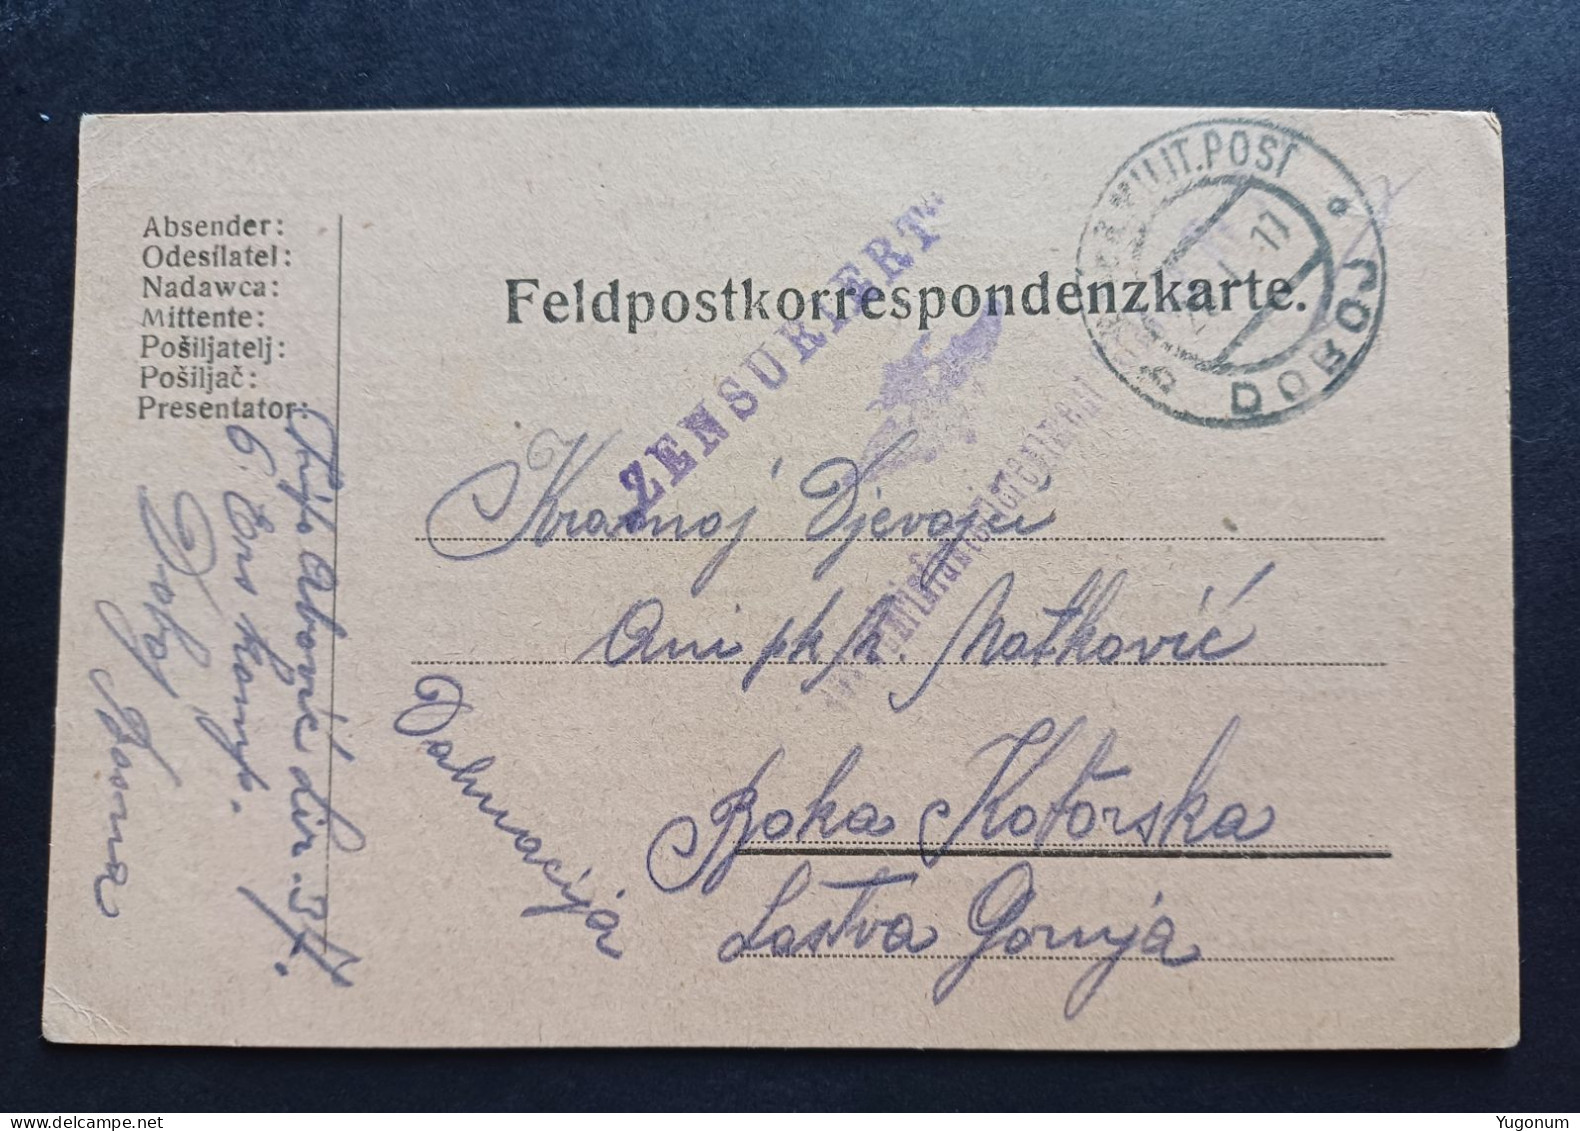 Absender:
Odesílatel:
Nadawca:
Mittente:
Pošiljatelj:
Pošiljač:
Presentator:
Feldpostkorrespondenzkarte.
"ZENSURIERT"
MILIT. POST
DOBOJ
Krasnoj Djevojci
Ani pk. k. Matković
Boka Kotorska
Lastva Gornja
Dalmacija
Abović Lir. 37.
6. Ers komp.
Doboj
Bosna
Yugonum